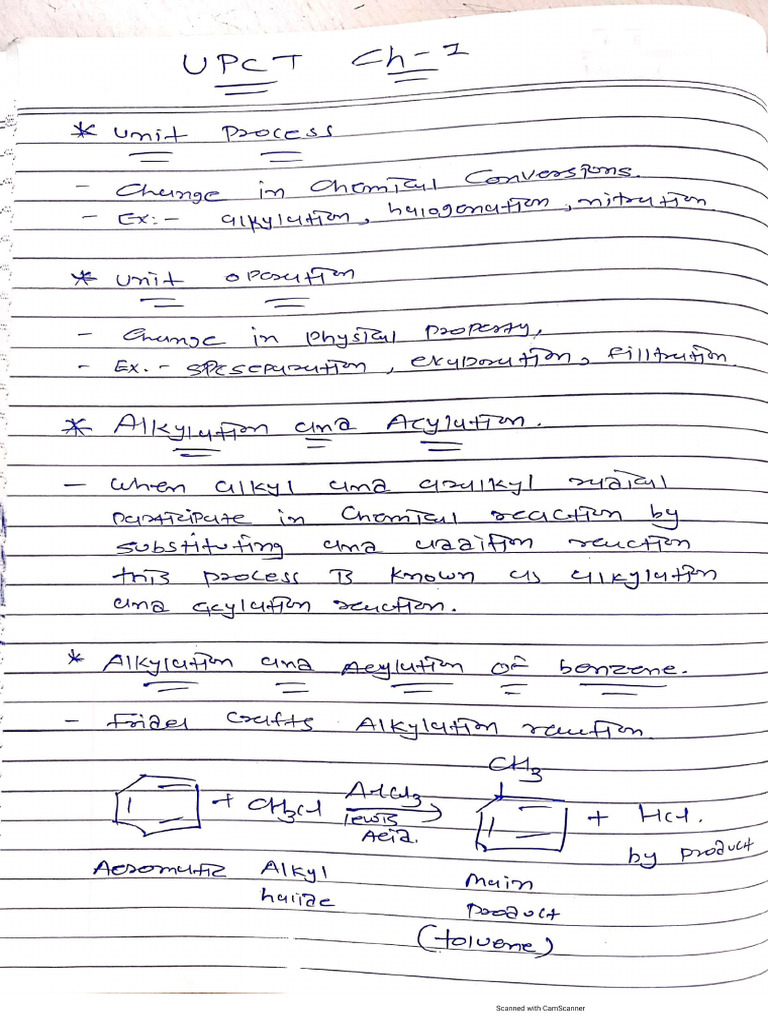 UPCT Ch-1
* unit process
- Change in Chemical Conversions.
- Ex:- alkylation, halogenation, nitration
* unit operation
- Change in physical property,
- Ex.- separation, evaporation, filltration.
* Alkylation and Acylation.
- when alkyl and aralkyl radical
participate in Chemical reaction by
substituting and addition reaction
this process is known as alkylation
and acylation reaction.
* Alkylation and Acylation of benzene.
- Fridel crafts Alkylation reaction.
CH3
+ CH3Cl AlCl3 + HCl.
lewis
Acid.
by product
Aeromatic Alkyl Main
halide product
(toluene)
Scanned with CamScanner